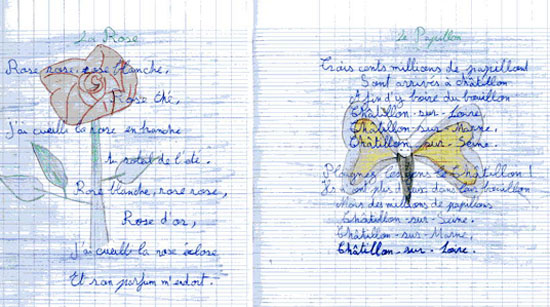 La Rose
Rose rose, rose blanche,
Rose thé,
J'ai cueilli la rose en branche
Au soleil de l'été.
Rose blanche, rose rose,
Rose d'or,
J'ai cueilli la rose éclose
Et son parfum m'endort.
Le Papillon
Trois cents millions de papillons
Sont arrivés à Châtillon
Afin d'y boire du bouillon
Châtillon-sur-Loire,
Châtillon-sur-Marne,
Châtillon-sur-Seine.
Plaignez les gens de Châtillon !
Ils n'ont plus dans leur bouillon
Mais des millions de papillons
Châtillon-sur-Seine.
Châtillon-sur-Marne,
Châtillon-sur-Loire.